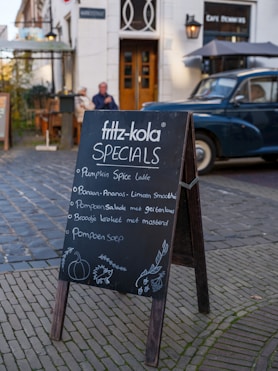 fritz-kola®
SPECIALS
Pumpkin Spice Latte
Banaan-Ananas-Limoen Smoothie
Pompoensalade met geitenkaas
Broodje kroket met mosterd
Pompoen Soep